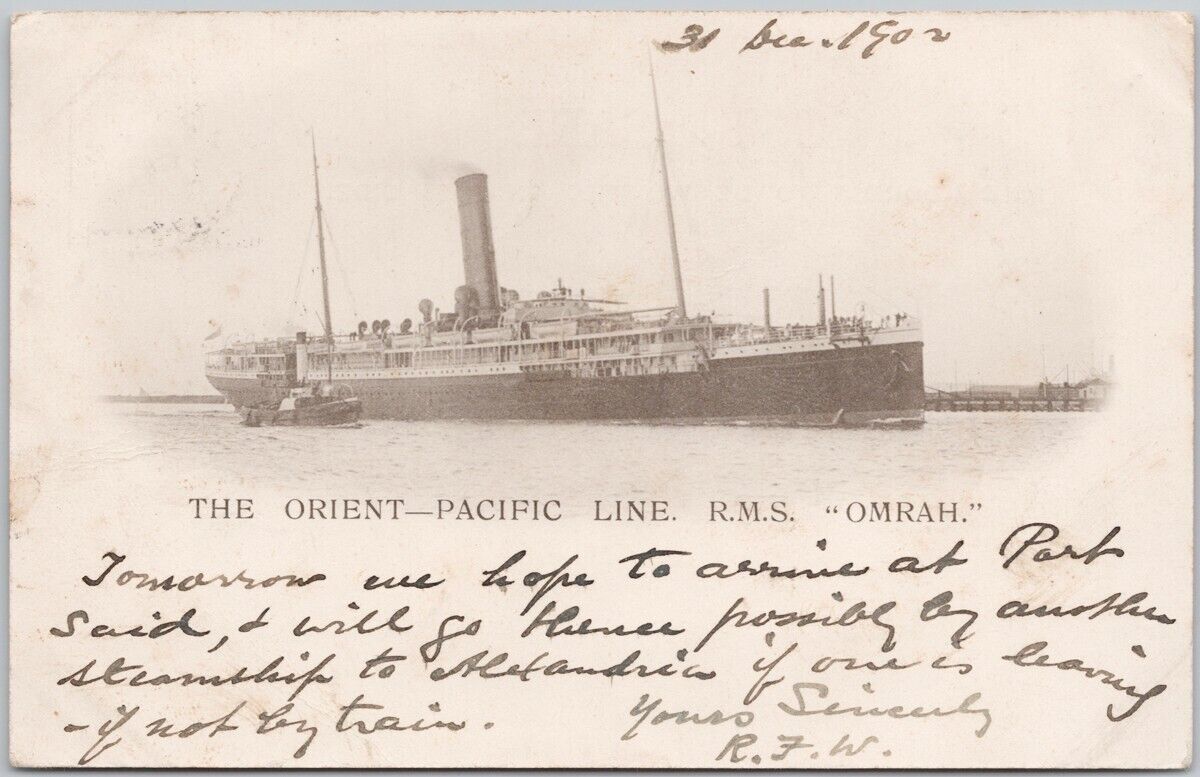 31 Dec. 1902
THE ORIENT—PACIFIC LINE. R.M.S. "OMRAH."
Tomorrow we hope to arrive at Port
Said, & will go thence possibly by another
steamship to Alexandria if one is leaving
- if not by train. Yours Sincerely
R.F.W.